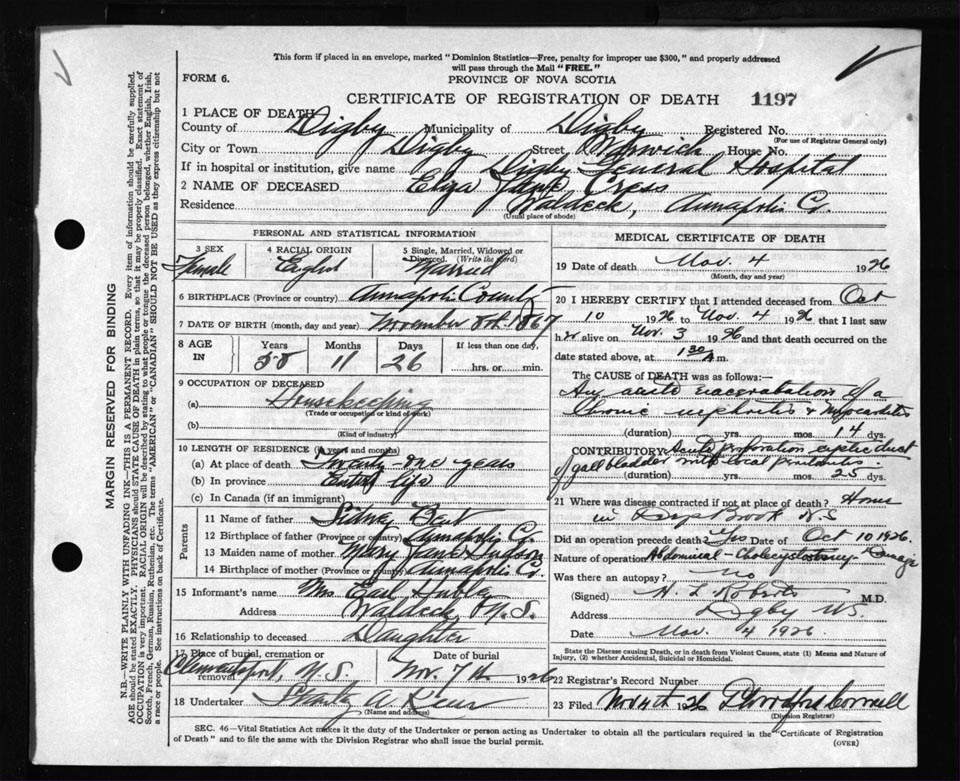 This form if placed in an envelope, marked "Dominion Statistics—Free, penalty for improper use $300," and properly addressed
will pass through the Mail "FREE."
FORM 6.
PROVINCE OF NOVA SCOTIA
CERTIFICATE OF REGISTRATION OF DEATH 1197
1 PLACE OF DEATH
County of Digby Municipality of Digby Registered No.
(For use of Registrar General only)
City or Town Digby Street, Warwick House No.
If in hospital or institution, give name Digby General Hospital
2 NAME OF DECEASED Eliza Jane Cress
Residence Waldeck, Annapolis Co.
(Usual place of abode)
PERSONAL AND STATISTICAL INFORMATION
3 SEX 4 RACIAL ORIGIN 5 Single, Married, Widowed or
Divorced. (Write the word)
Female English Married
6 BIRTHPLACE (Province or country) Annapolis County
7 DATE OF BIRTH (month, day and year) November 8th. 1867
8 AGE IN Years Months Days If less than one day,
58 11 26 hrs. or min.
9 OCCUPATION OF DECEASED
(a) Housekeeping
(Trade or occupation or kind of work)
(b)
(Kind of industry)
10 LENGTH OF RESIDENCE (in years and months)
(a) At place of death Twenty-one years
(b) In province Entire life
(c) In Canada (if an immigrant)
Parents
11 Name of father Sidney
12 Birthplace of father (Province or country) Annapolis Co.
13 Maiden name of mother Mary Jane
14 Birthplace of mother (Province or country) Annapolis Co.
15 Informant's name Mrs. Earl
Address Waldeck N.S.
16 Relationship to deceased Daughter
17 Place of burial, cremation or
removal Clementsport, N.S.
Date of burial
Nov. 7th 1926
18 Undertaker
(Name and address)
MEDICAL CERTIFICATE OF DEATH
19 Date of death Nov. 4 1926
(Month, day and year)
20 I HEREBY CERTIFY that I attended deceased from Oct
10 1926 to Nov. 4 1926, that I last saw
her alive on Nov. 3 1926 and that death occurred on the
date stated above, at 1 30 A m.
The CAUSE of DEATH was as follows:
An acute exacerbation of a
chronic nephritis & myocarditis
(duration) yrs. mos. 14 dys.
CONTRIBUTORY: Acute perforation cystic duct
of gall bladder with local peritonitis.
(duration) yrs. mos. 25 dys.
21 Where was disease contracted if not at place of death? Home
in Deep Brook N.S
Did an operation precede death? Yes Date of Oct 10 1926.
Nature of operation Abdominal - Cholecystostomy - Drainage
Was there an autopsy? no
(Signed) H. L Roberts M.D.
Address Digby N.S.
Date Nov. 4 1926.
State the Disease causing Death, or in death from Violent Causes, state (1) Means and Nature of
Injury, (2) whether Accidental, Suicidal or Homicidal.
22 Registrar's Record Number
23 Filed Nov 4th 1926
(Division Registrar)
SEC. 46—Vital Statistics Act makes it the duty of the Undertaker or person acting as Undertaker to obtain all the particulars required in the "Certificate of Registration
of Death" and to file the same with the Division Registrar who shall issue the burial permit.
(OVER)
MARGIN RESERVED FOR BINDING
N.B.—WRITE PLAINLY WITH UNFADING INK—THIS IS A PERMANENT RECORD. Every item of information should be carefully supplied.
AGE should be stated EXACTLY. PHYSICIANS should STATE CAUSE OF DEATH in plain terms, so that it may be properly classified. Exact statement of
OCCUPATION is very important. RACIAL ORIGIN will be described by stating to what people or tongue the deceased person belonged, whether English, Irish,
Scotch, French, German, Russian, Ruthenian, etc. The terms "AMERICAN" or "CANADIAN" SHOULD NOT BE USED as they express citizenship but not
a race or people. See instructions on back of Certificate.